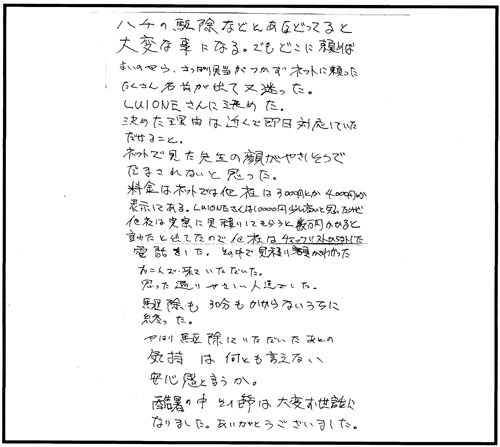 ハチの駆除などとんあなどってると
大変な事になる。でもどこに頼めば
よいのやら、さっぱり見当がつかずネットに頼った
たくさん名前が出て又迷った。
LUIONEさんに決めた。
決めた理由は近くで即日対応していた
だけること。
ネットで見た先生の顔がやさしそうで
だまされないと思った。
料金はネットでは他社は3000円とか4000円が
表示してある。LUIONEさんは10000円
他社は実際に見積りしてもらうと数万円かかると
出てたので他社は
電話をした。その中で見積り額がわかった
ので、来ていただいた。
思った通りやさしい人達でした。
駆除も30分もかからないうちに
終った。
やはり駆除していただいたあとの
気持は何とも言えない
安心感と言うか。
酷暑の中は大変お世話に
なりました。ありがとうございました。